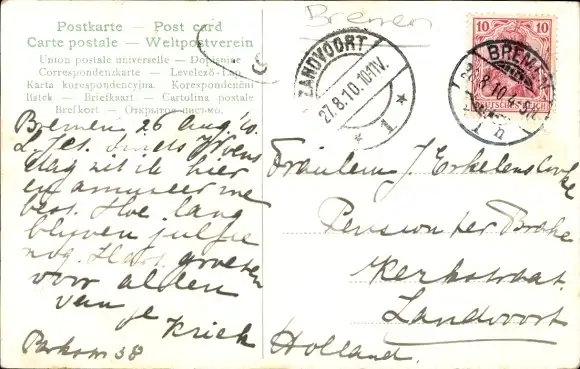 Bremen
Postkarte — Post card
Carte postale — Weltpostverein
Union postale universelle — Dopisnice
Correspondenzkarte — Levelező-Lap
Karta korespondencyjna Korespondenční
lístek — Briefkaart — Cartolina postale
Brefkort — Открытое письмо.
ZANDVOORT
27.8.10.10-11V.
* 1 *
10 10
BREMEN
1 h
Bremen, 26 Aug '10.
zit ik hier
en amuseer me
best. Hoe lang
blijven jullie
nog. Hart. groeten
voor allen
van je
Kriek
38
Fräulein J.
Pension ter
Kerkstraat.
Zandvoort
Holland.